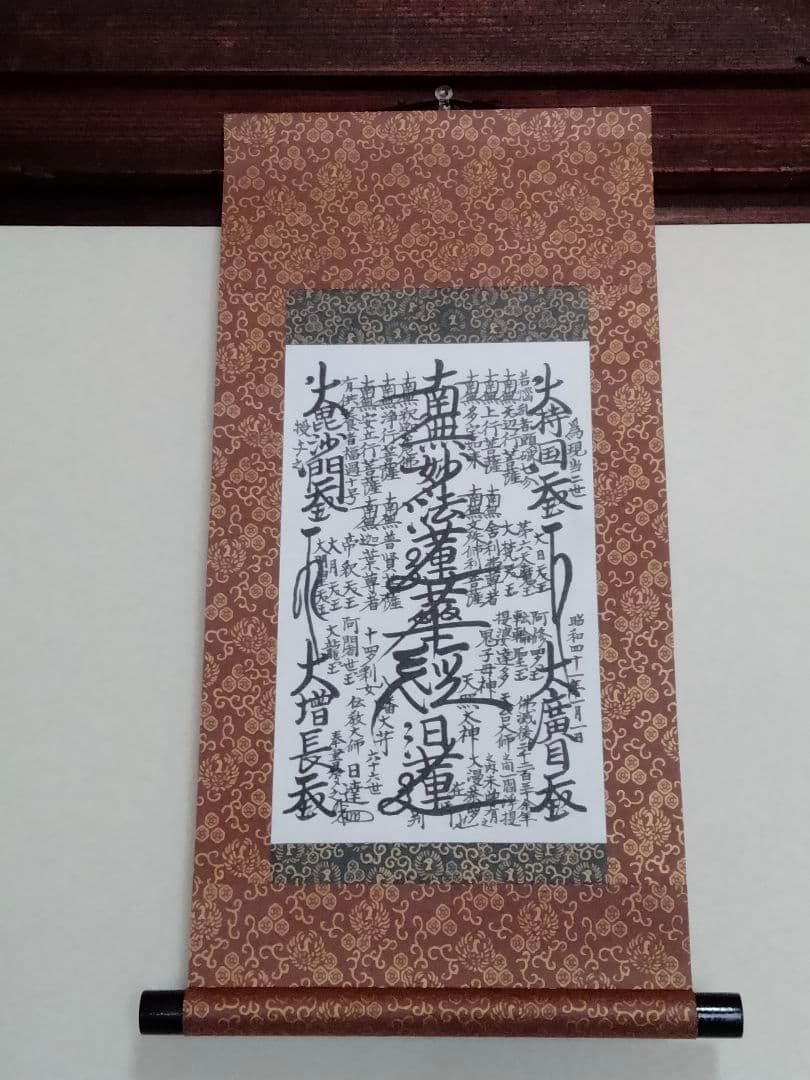 為現当二世
昭和四十一年一月一日
大持国天王
大廣目天王
若悩乱者頭破七分
南無无辺行菩薩
南無上行菩薩
南無多宝如来
大日天王
第六天魔王
大梵天王
南無舎利弗尊者
南無文殊師利菩薩
阿修羅王
転輪聖王
提婆達多
鬼子母神
天照太神
天台大師
佛滅後二千二百三十余年
之間一閻浮提
之内未曽有之
大漫荼羅也
南無妙法蓮華經 日蓮
在御判
南無釈迦牟尼佛
南無浄行菩薩
南無安立行菩薩
有供養者福過十号
南無普賢菩薩
南無迦葉尊者
帝釈天王
大月天王
大明星天王
十羅刹女
八幡大菩薩
阿闍世王
大龍王
伝教大師
六十六世
日達
奉書写之
大毘沙門天王
大増長天王
授与之